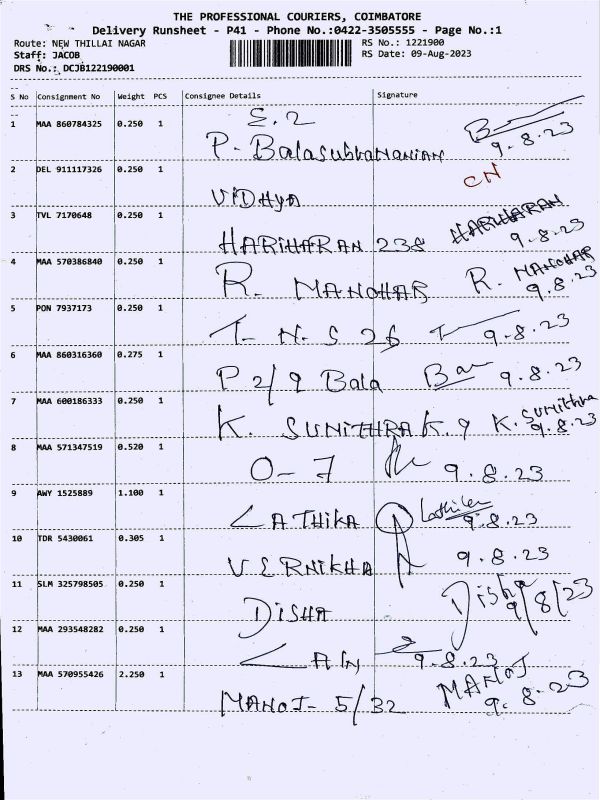 THE PROFESSIONAL COURIERS, COIMBATORE
Delivery Runsheet - P41 - Phone No.:0422-3505555 - Page No.:1
Route: NEW THILLAI NAGAR RS No.: 1221900
Staff: JACOB RS Date: 09-Aug-2023
DRS No.: DCJB122190001
S No Consignment No Weight PCS Consignee Details Signature
1 MAA 860784325 0.250 1 E.2
P. Balasubramanian 9.8.23
2 DEL 911117326 0.250 1 CN
VIDHYA
3 TVL 7170648 0.250 1 HARIHARAN
HARIHARAN 238 9.8.23
4 MAA 570386840 0.250 1 R. MANOHAR R. MANOHAR
9.8.23
5 PON 7937173 0.250 1
T.N.S 26 9.8.23
6 MAA 860316360 0.275 1
P2/9 Bala 9.8.23
7 MAA 600186333 0.250 1 K. Sunithra
K. SUNITHRA K.9 9.8.23
8 MAA 571347519 0.520 1
O-7 9.8.23
9 AWY 1525889 1.100 1 Lathika
LATHIKA 9.8.23
10 TDR 5430061 0.305 1
VERNIKHA 9.8.23
11 SLM 325798505 0.250 1 Disha
DISHA 9/8/23
12 MAA 293548282 0.250 1
9.8.23
13 MAA 570955426 2.250 1 MANOJ
MANOJ- 5/32 9.8.23